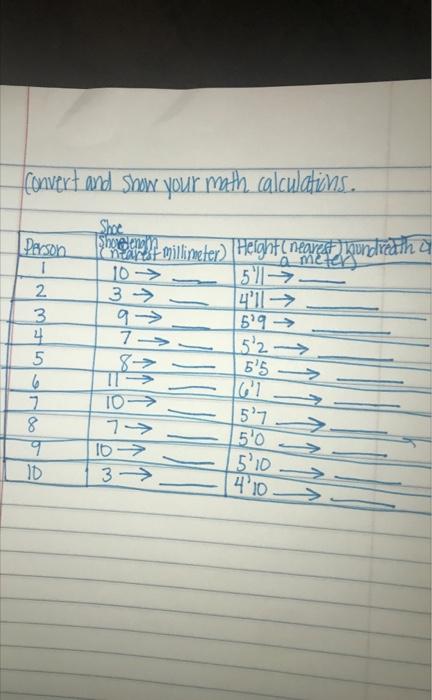 Convert and show your math calculations.
Shoe
Person Shoe length (nearest millimeter) Height (nearest hundredth of a meter)
1 10 → ___ 5'11 → ___
2 3 → ___ 4'11 → ___
3 9 → ___ 5'9 → ___
4 7 → ___ 5'2 → ___
5 8 → ___ 5'5 → ___
6 11 → ___ 6'1 → ___
7 10 → ___ 5'7 → ___
8 7 → ___ 5'0 → ___
9 10 → ___ 5'10 → ___
10 3 → ___ 4'10 → ___